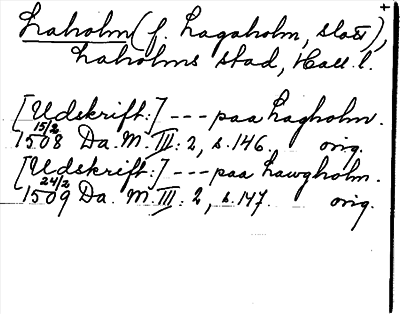 Laholm (f. Lagaholm, slott),
Laholms stad, Hall. l.
[Udskrift:] --- paa Lagholm.
15/2
1508 Da. M. III: 2, s. 146. orig.
[Udskrift:] --- paa Lawgholm.
24/2
1509 Da. M. III: 2, s. 147. orig.